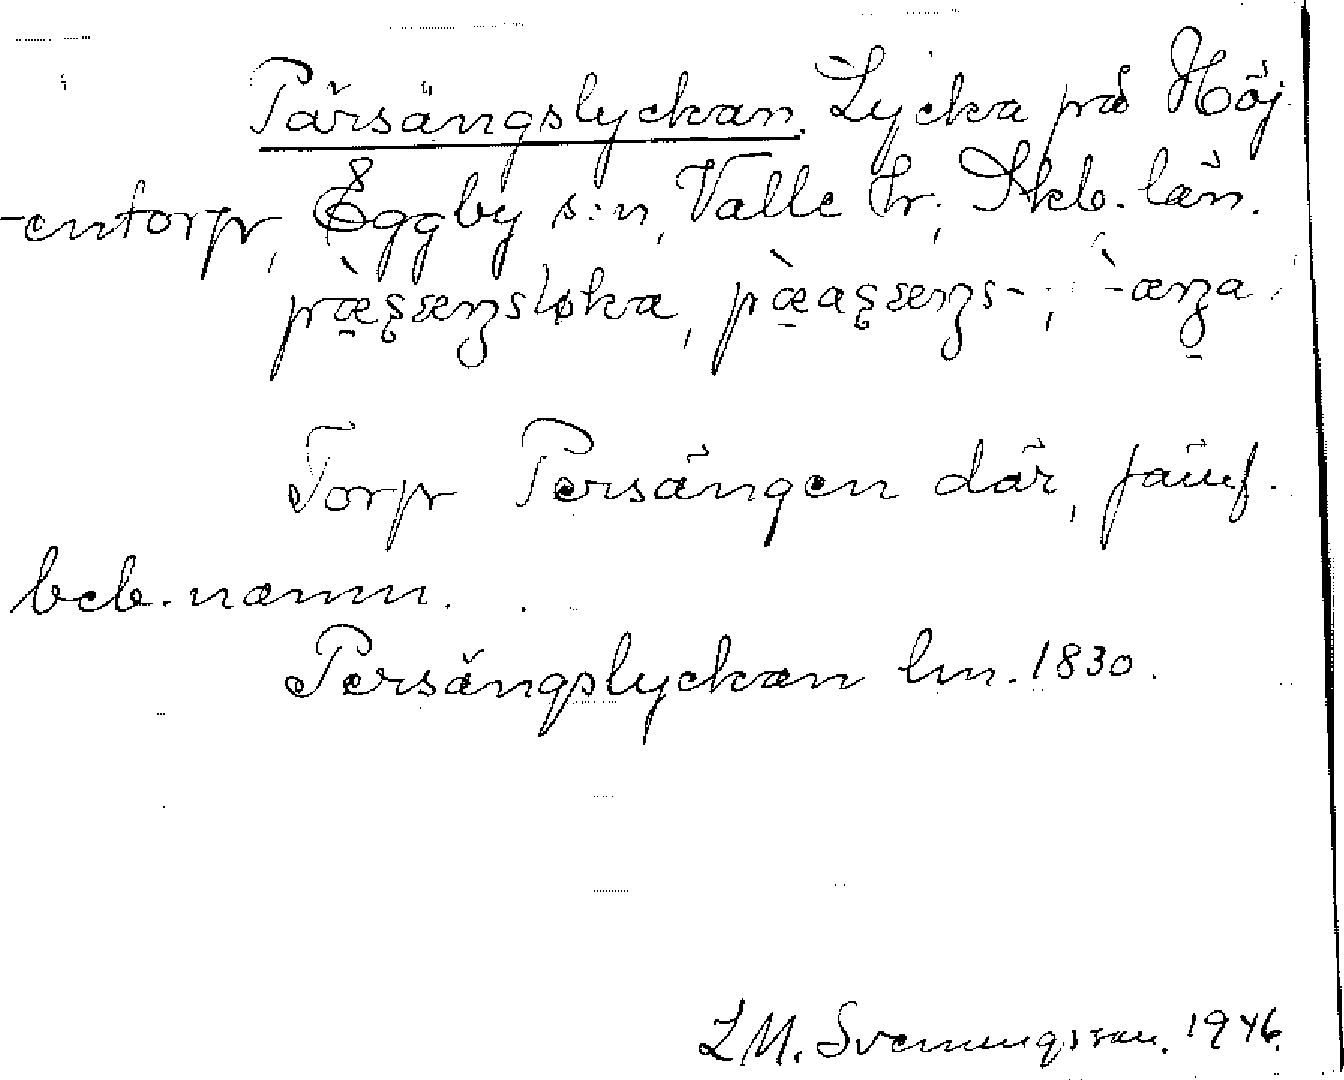 Pärsängslyckan. Lycka på Höj
-entorp, Eggby s:n, Valle hr, Skb. län.
Torp Persängen där, jämf.
beb. namn.
Persängslyckan lm. 1830.
L M. Svenungsson. 1946.